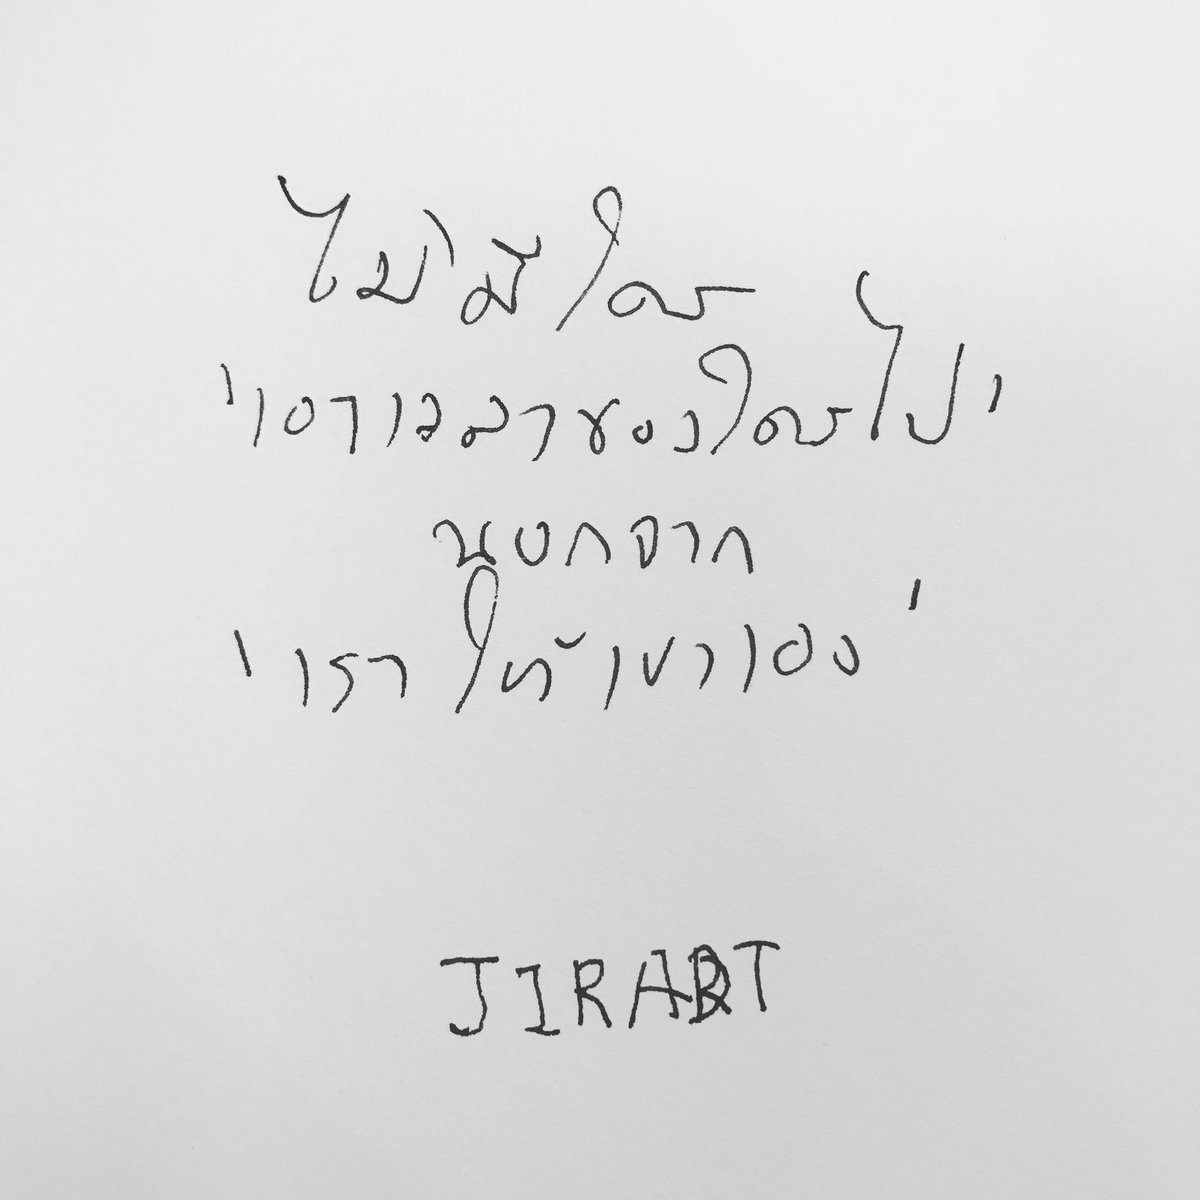 ไม่มีใคร
'เอาเวลาของใครไป'
นอกจาก
'เราให้เขาเอง'